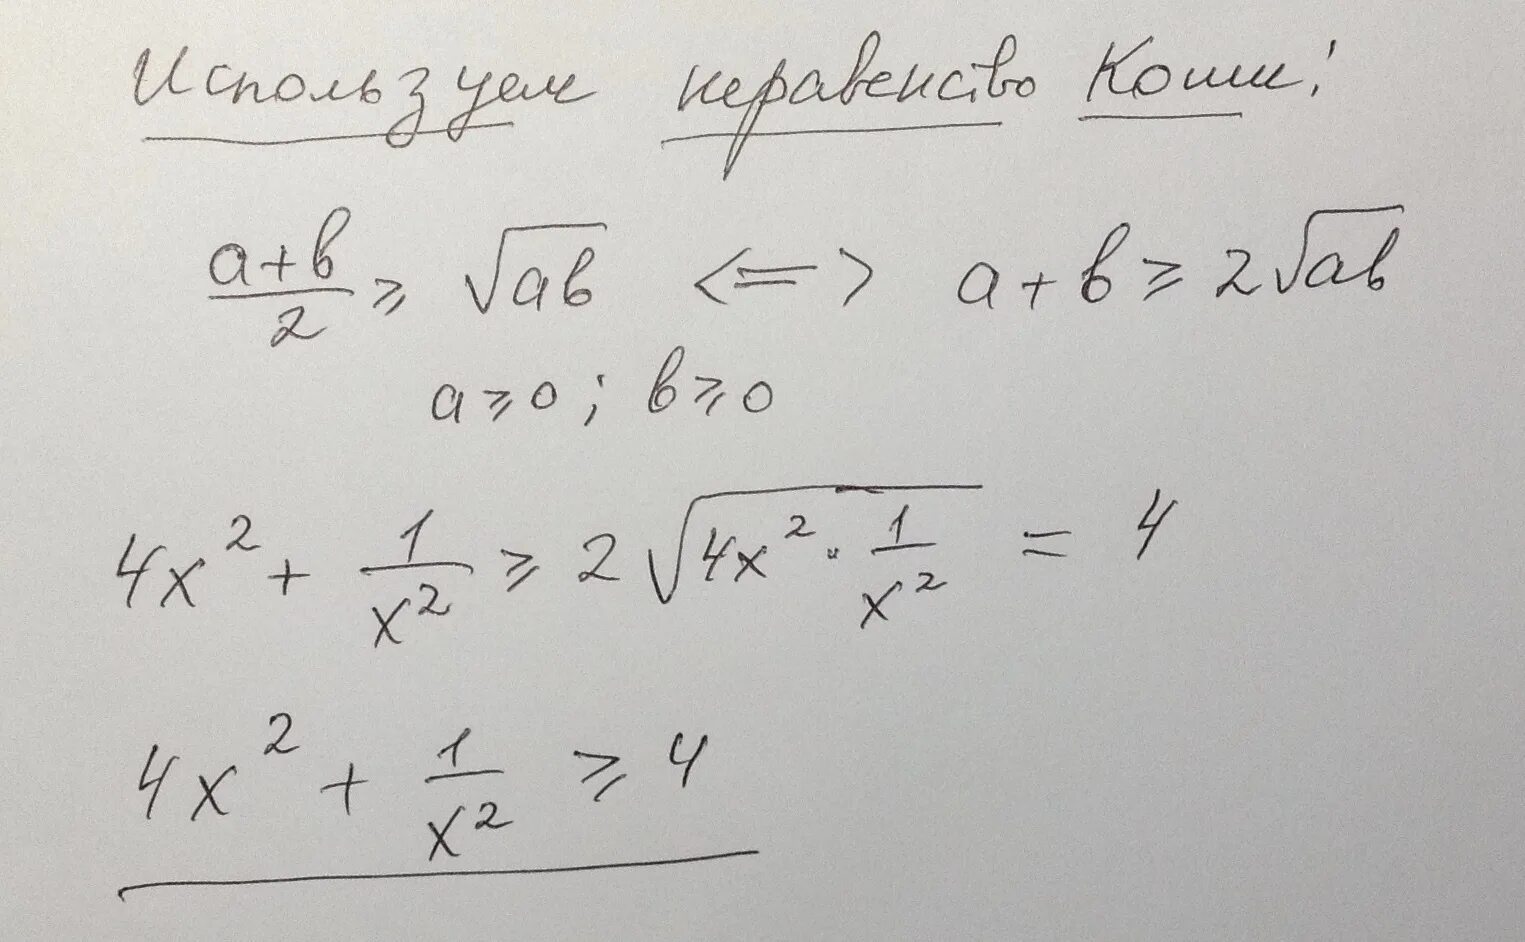 Используем неравенство Коши:
a+b/2 ≥ √ab <=> a+b ≥ 2√ab
a≥0; b≥0
4x² + 1/x² ≥ 2√(4x² · 1/x²) = 4
4x² + 1/x² ≥ 4